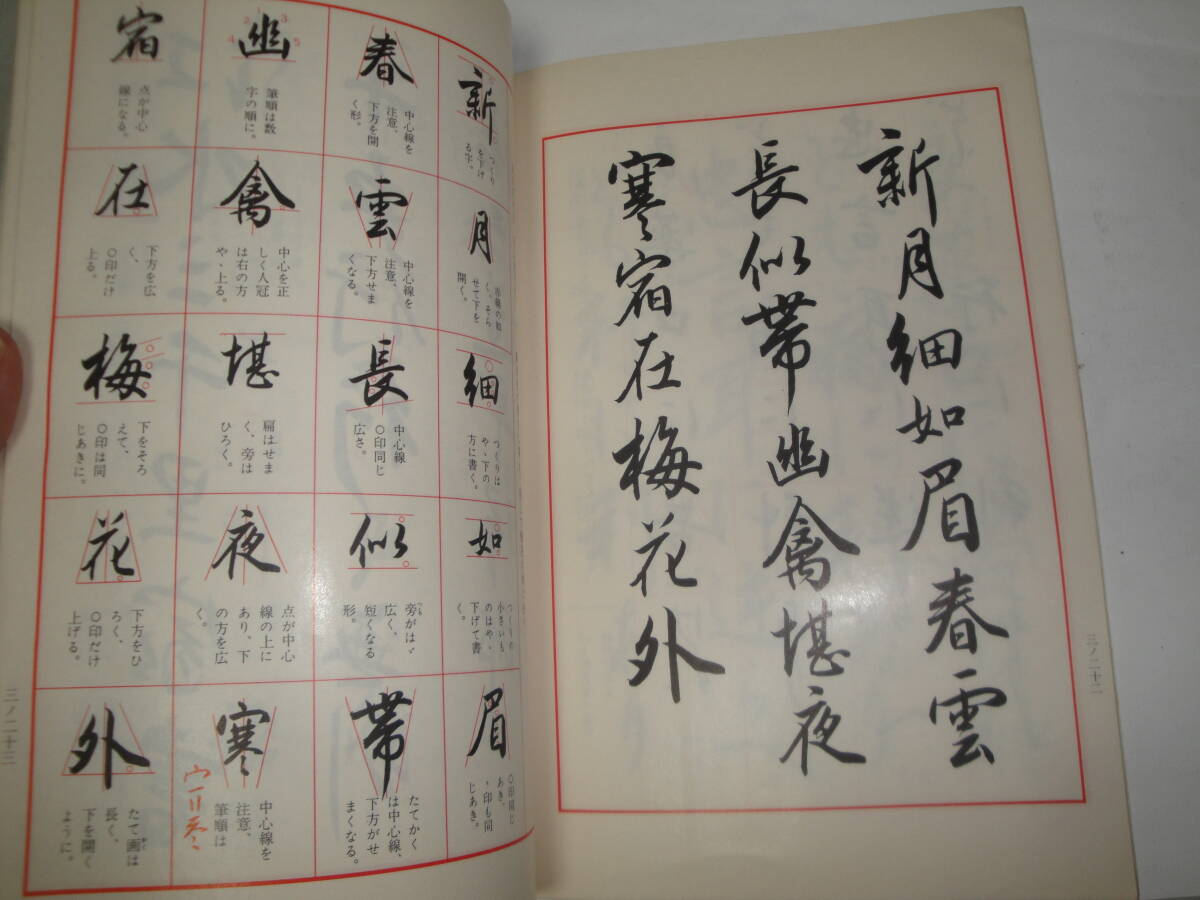 新月細如眉春雲
長似帯幽禽堪夜
寒宿在梅花外
三ノ二十二
新
つくり
を下げ
る字。
月
せて下を
開く。
細
つくりは
やゝ下の
方に書く。
如
つくりの
小さいも
のはやゝ
下げて書
く。
眉
〇印同じ
あき、
、印も同
じあき。
春
中心線を
注意、
下方を開
く形。
雲
中心線を
注意、
下方せま
くなる。
長
中心線
〇印同じ
広さ。
似
旁がはゞ
広く、
短くなる
形。
帯
たてかく
は中心線、
下方がせ
まくなる。
幽
1
2
3
4
5
筆順は数
字の順に。
禽
中心を正
しく人冠
は右の方
やゝ上る。
堪
扁はせま
く、旁は
ひろく。
夜
点が中心
線の上に
あり、下
の方を広
く。
寒
中心線を
注意、
筆順は
宿
点が中心
線になる。
在
下方を広
く、
〇印だけ
上る。
梅
下をそろ
えて、
〇印は同
じあきに。
花
下方をひ
ろく、
〇印だけ
上げる。
外
たて画は
長く、
下を開く
ように。
三ノ二十三